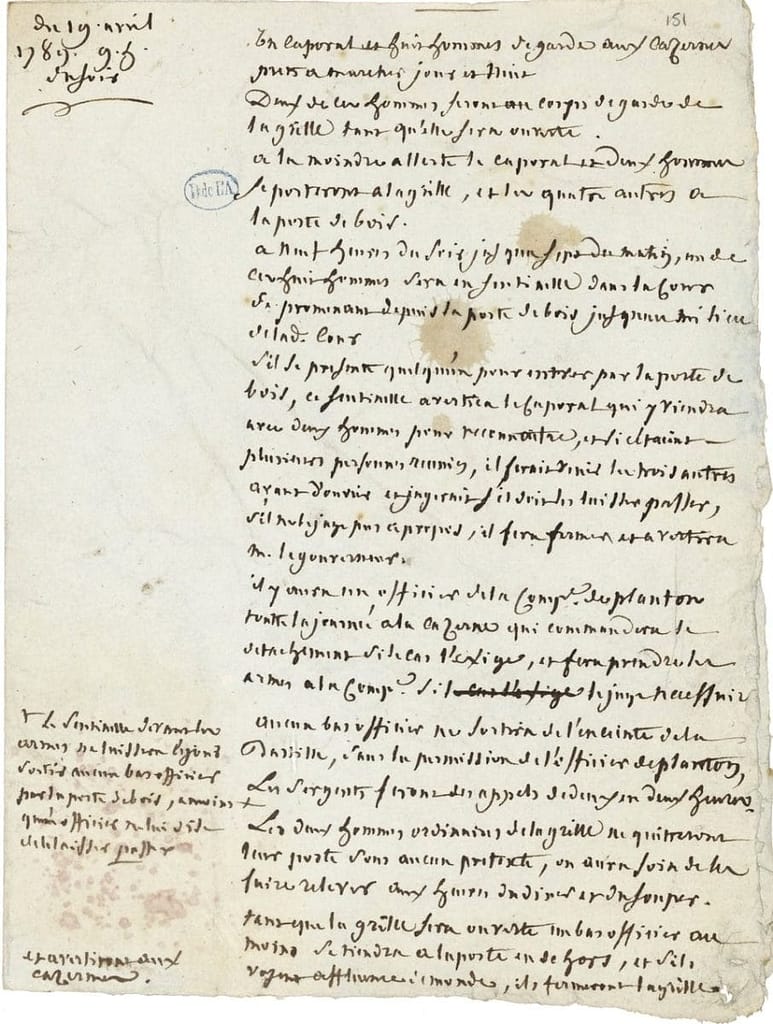 151
du 19. avril
1789. 9. h.
du soir
Un caporal et huit hommes de garde aux cazernes
prets a marcher jour et nuit
Deux de ces hommes seront au corps de garde de
la grille tant qu'elle sera ouverte.
a la moindre allerte le caporal et deux hommes
se porteront a la grille, et les quatre autres a
la porte de bois.
B. de l'A
a huit heures du soir jusqu'a sept du matin, un de
ces huit hommes sera en sentinelle dans la Cour
se promenant depuis la porte de bois jusqu'au milieu
de lad. Cour
s'il se presente quelqu'un pour entrer par la porte de
bois, ce sentinelle avertira le Caporal qui y viendra
avec deux hommes pour reconnoitre, et si c'etaient
plusieurs personnes reunies, il ferait venir les trois autres
avant d'ouvrir et jugerait s'il doit les laisser passer,
s'il ne le juge pas a propos, il fera fermer et avertira
M. le gouverneur.
il y aura un officier de la Compe. de planton
toute la journée a la cazerne qui commandera le
detachement si le cas l'exige, et fera prendre les
armes a la Compe. s'il le juge necessaire
aucun bas officier ne sortira de l'enceinte de la
Bastille, sans la permission de l'officier de planton,
Les sergents feront des appels de deux en deux heures
+ Le sentinelle devant les
armes ne laissera
sortir aucun bas officier
par la porte de bois, a moins
qu'un officier ne lui dise
de le laisser passer
Les deux hommes ordinaires de la grille ne quitteront
leur poste sous aucun pretexte, on aura soin de les
faire relever aux heures du diner et du souper.
tant que la grille sera ouverte un bas officier au
moins se tiendra a la porte en dehors, et s'ils
voyent affluence de monde, ils fermeront la grille
et avertiront aux
cazernes.